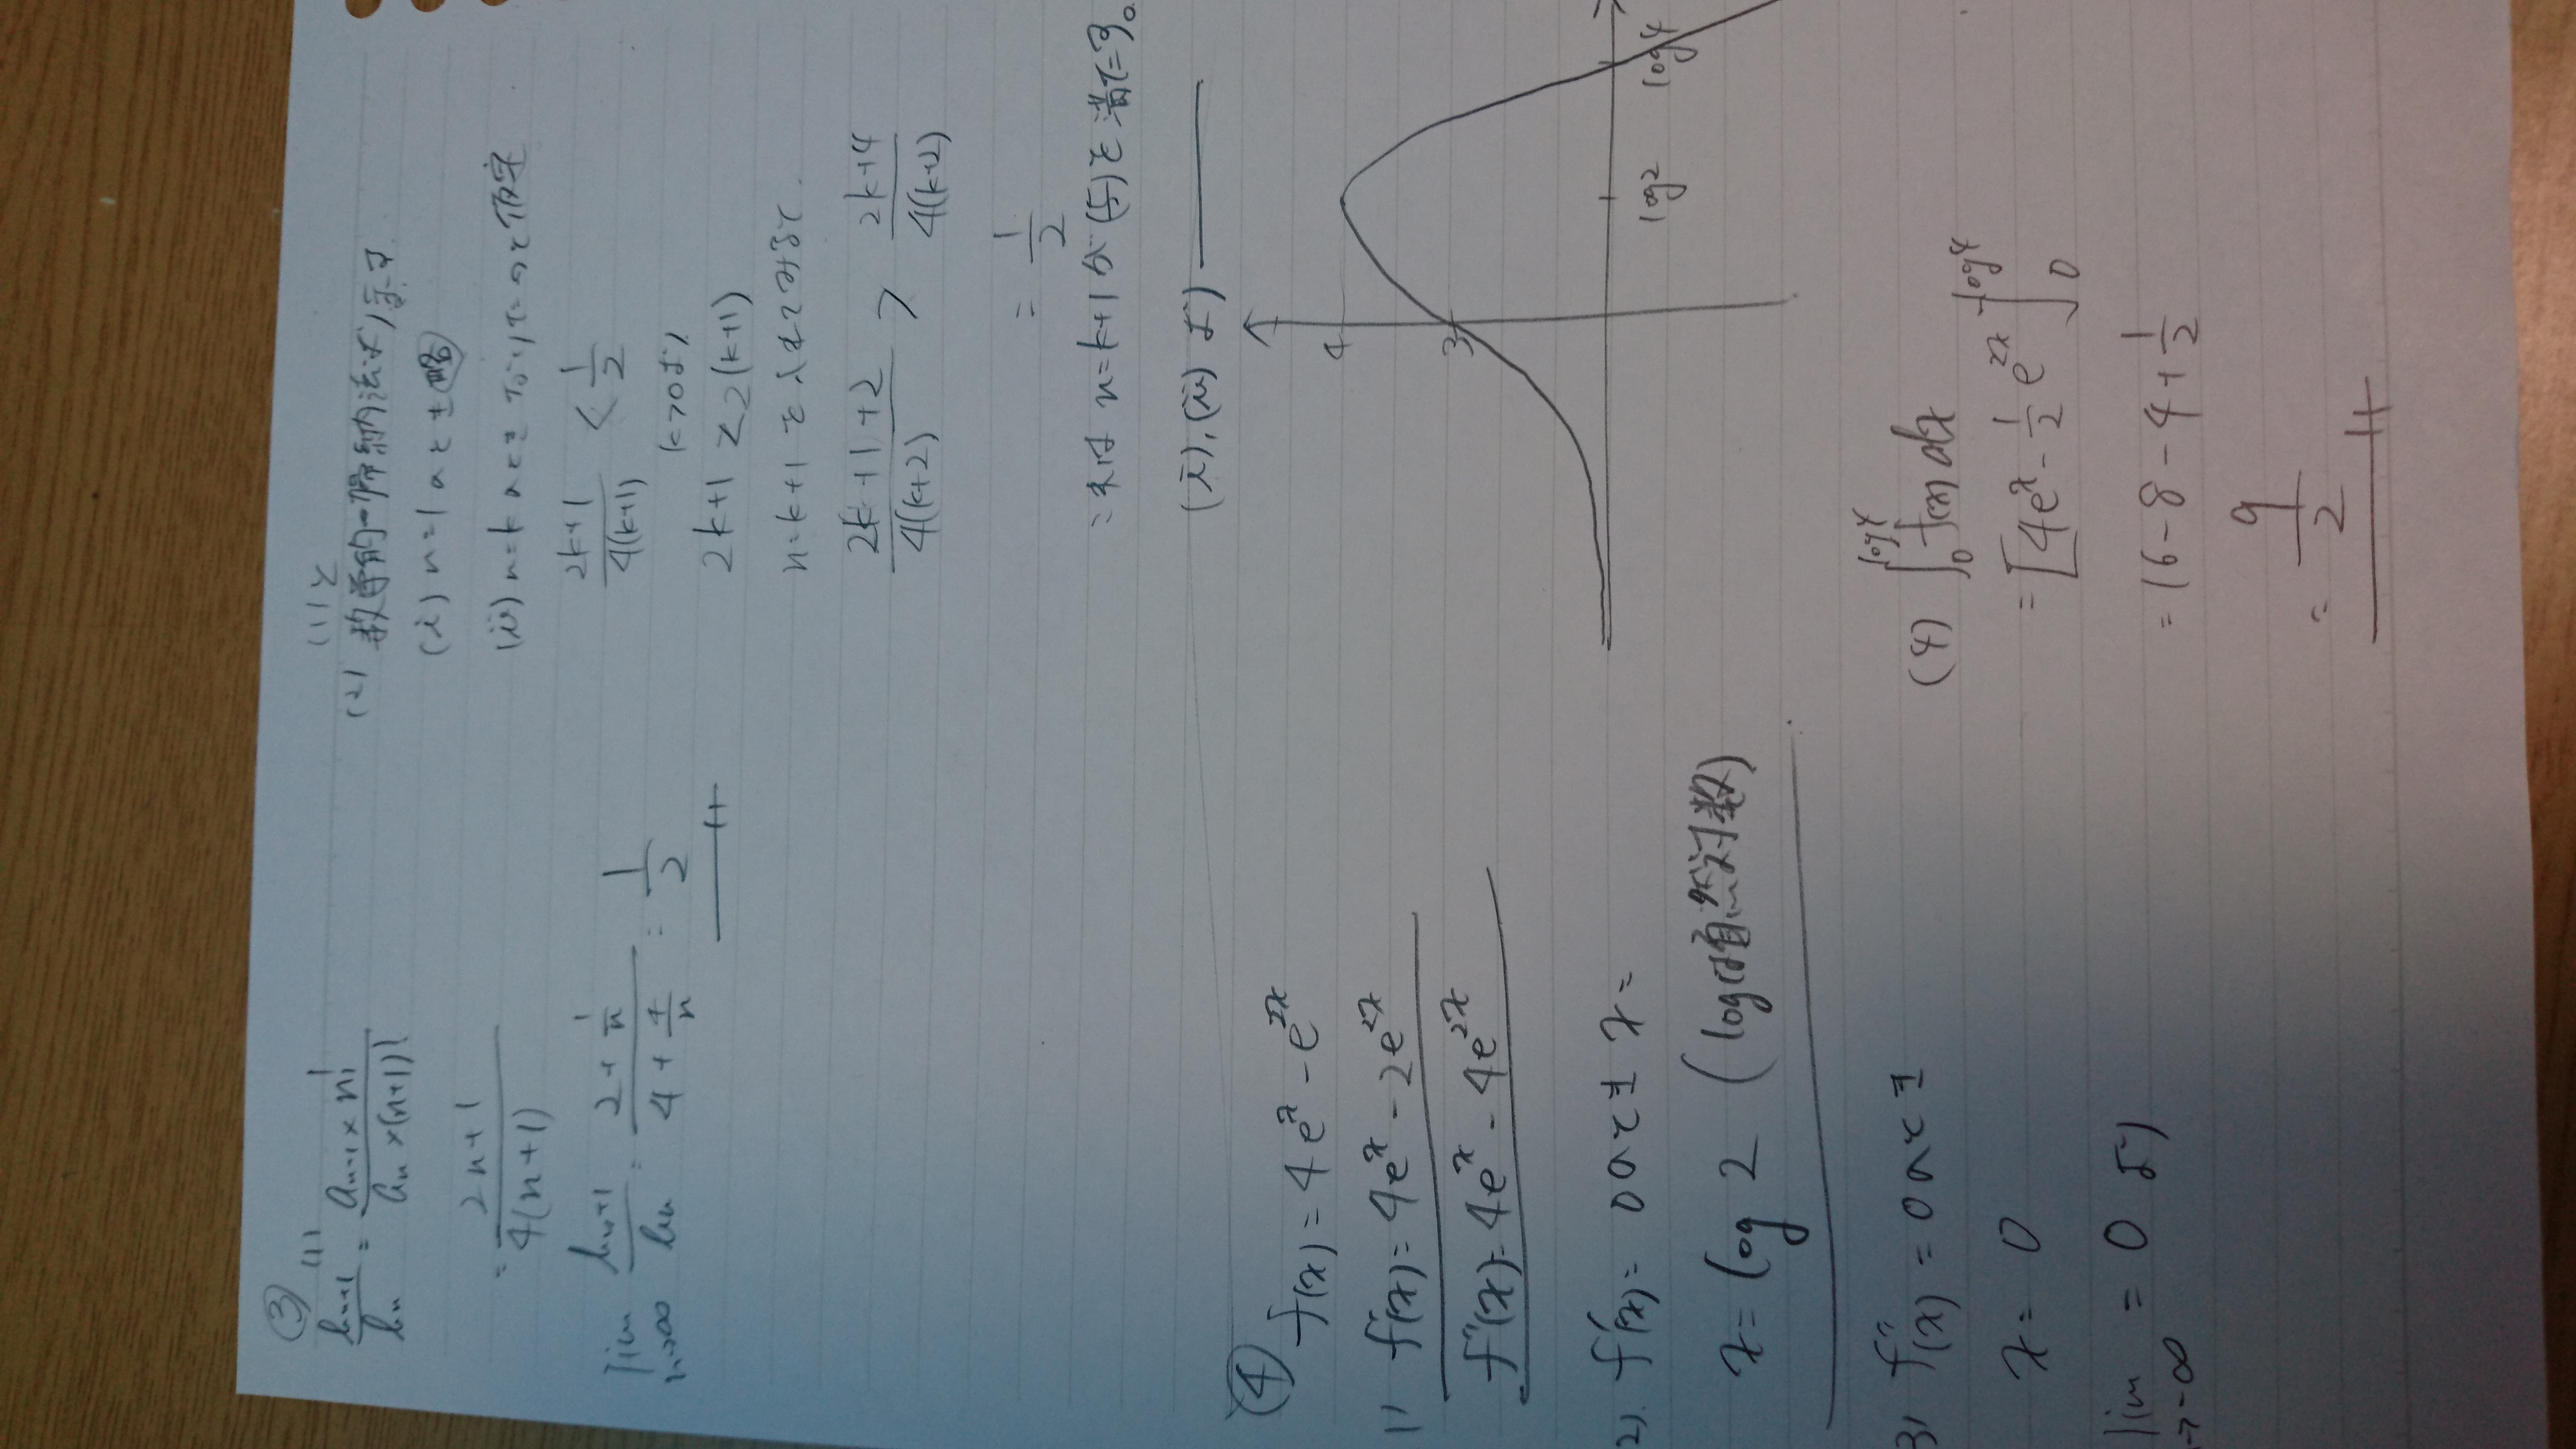 ③
(1)
bn+1/bn = an+1 × n!/an × (n+1)!
= 2n+1/4(n+1)
lim n→∞ bn+1/bn = 2+1/n / 4+4/n = 1/2
(1)より
(2) 数学的帰納法より示す
(i) n=1のとき 略
(ii) n=kのとき 成り立つと仮定
2k+1/4(k+1) < 1/2
k>0より
2k+1 < 2(k+1)
n=k+1
2k+1+2/4(k+2) > 2k+4/4(k+2)
= 1/2
これは n=k+1が(与)を満たす。
(i),(ii)より
④
f(x) = 4e^x - e^2x
1) f'(x) = 4e^x - 2e^2x
f''(x) = 4e^x - 4e^2x
2). f'(x) = 0のとき x =
x = log 2 (logは自然対数)
3) f''(x) = 0のとき
x = 0
lim x→-∞ = 0 より
4
3
log2
log4
(4) ∫0 log4 f(x) dx
= [4e^x - 1/2 e^2x] log4 0
= 16 - 8 - 4 + 1/2
= 9/2